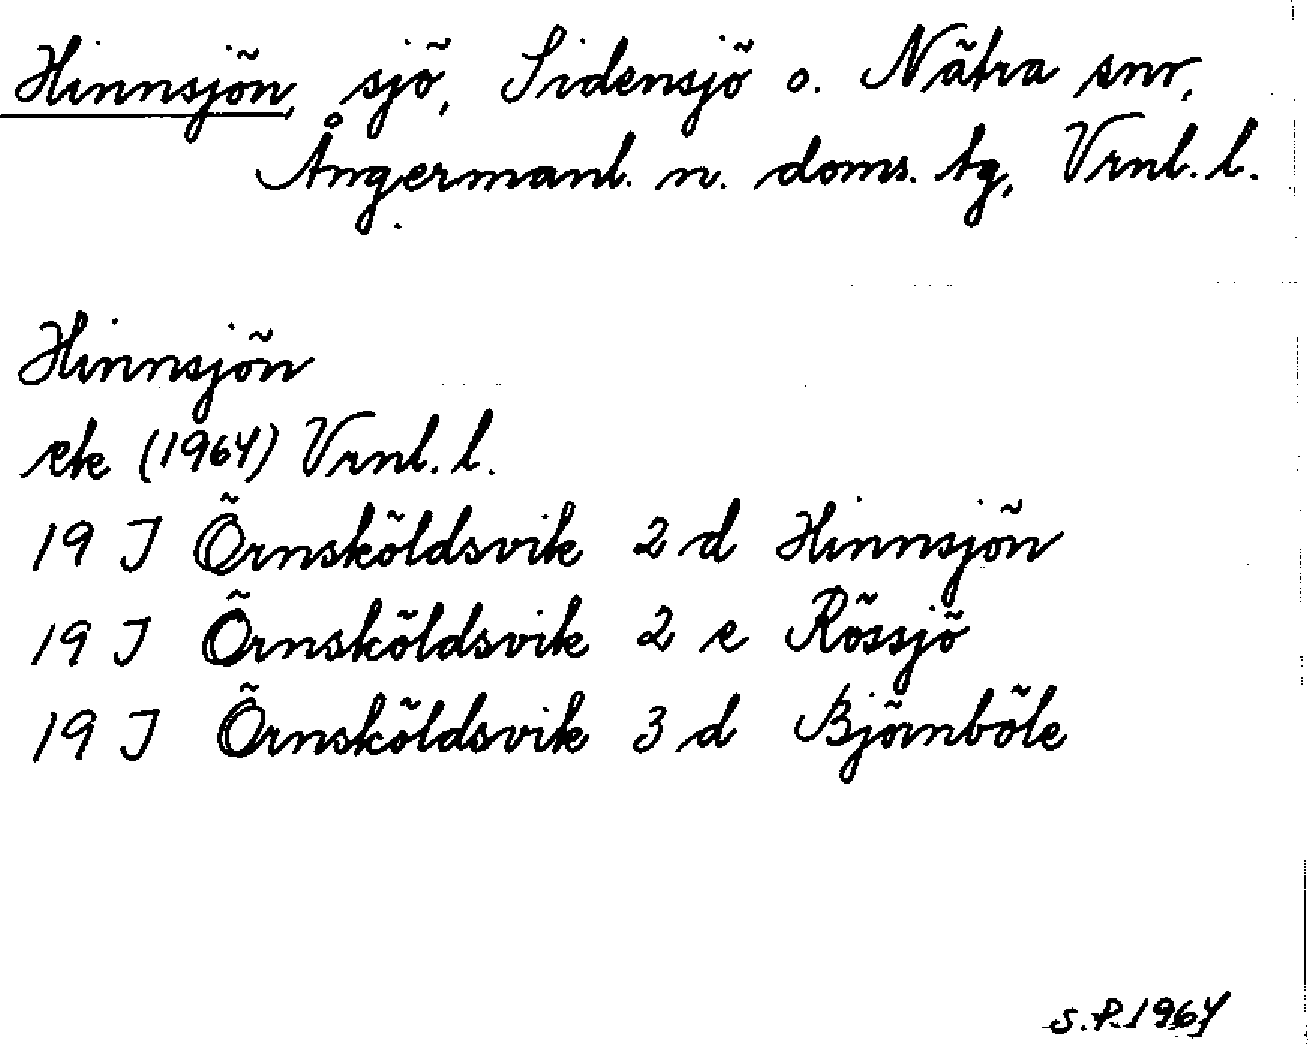 Hinnsjön, sjö, Sidensjö o. Nätra snr,
Ångermanl. n. doms. tg, Vrnl. l.
Hinnsjön
ek (1964) Vrnl. l.
19 J Örnsköldsvik 2 d Hinnsjön
19 J Örnsköldsvik 2 e Rössjö
19 J Örnsköldsvik 3 d Björnböle
S.P. 1964